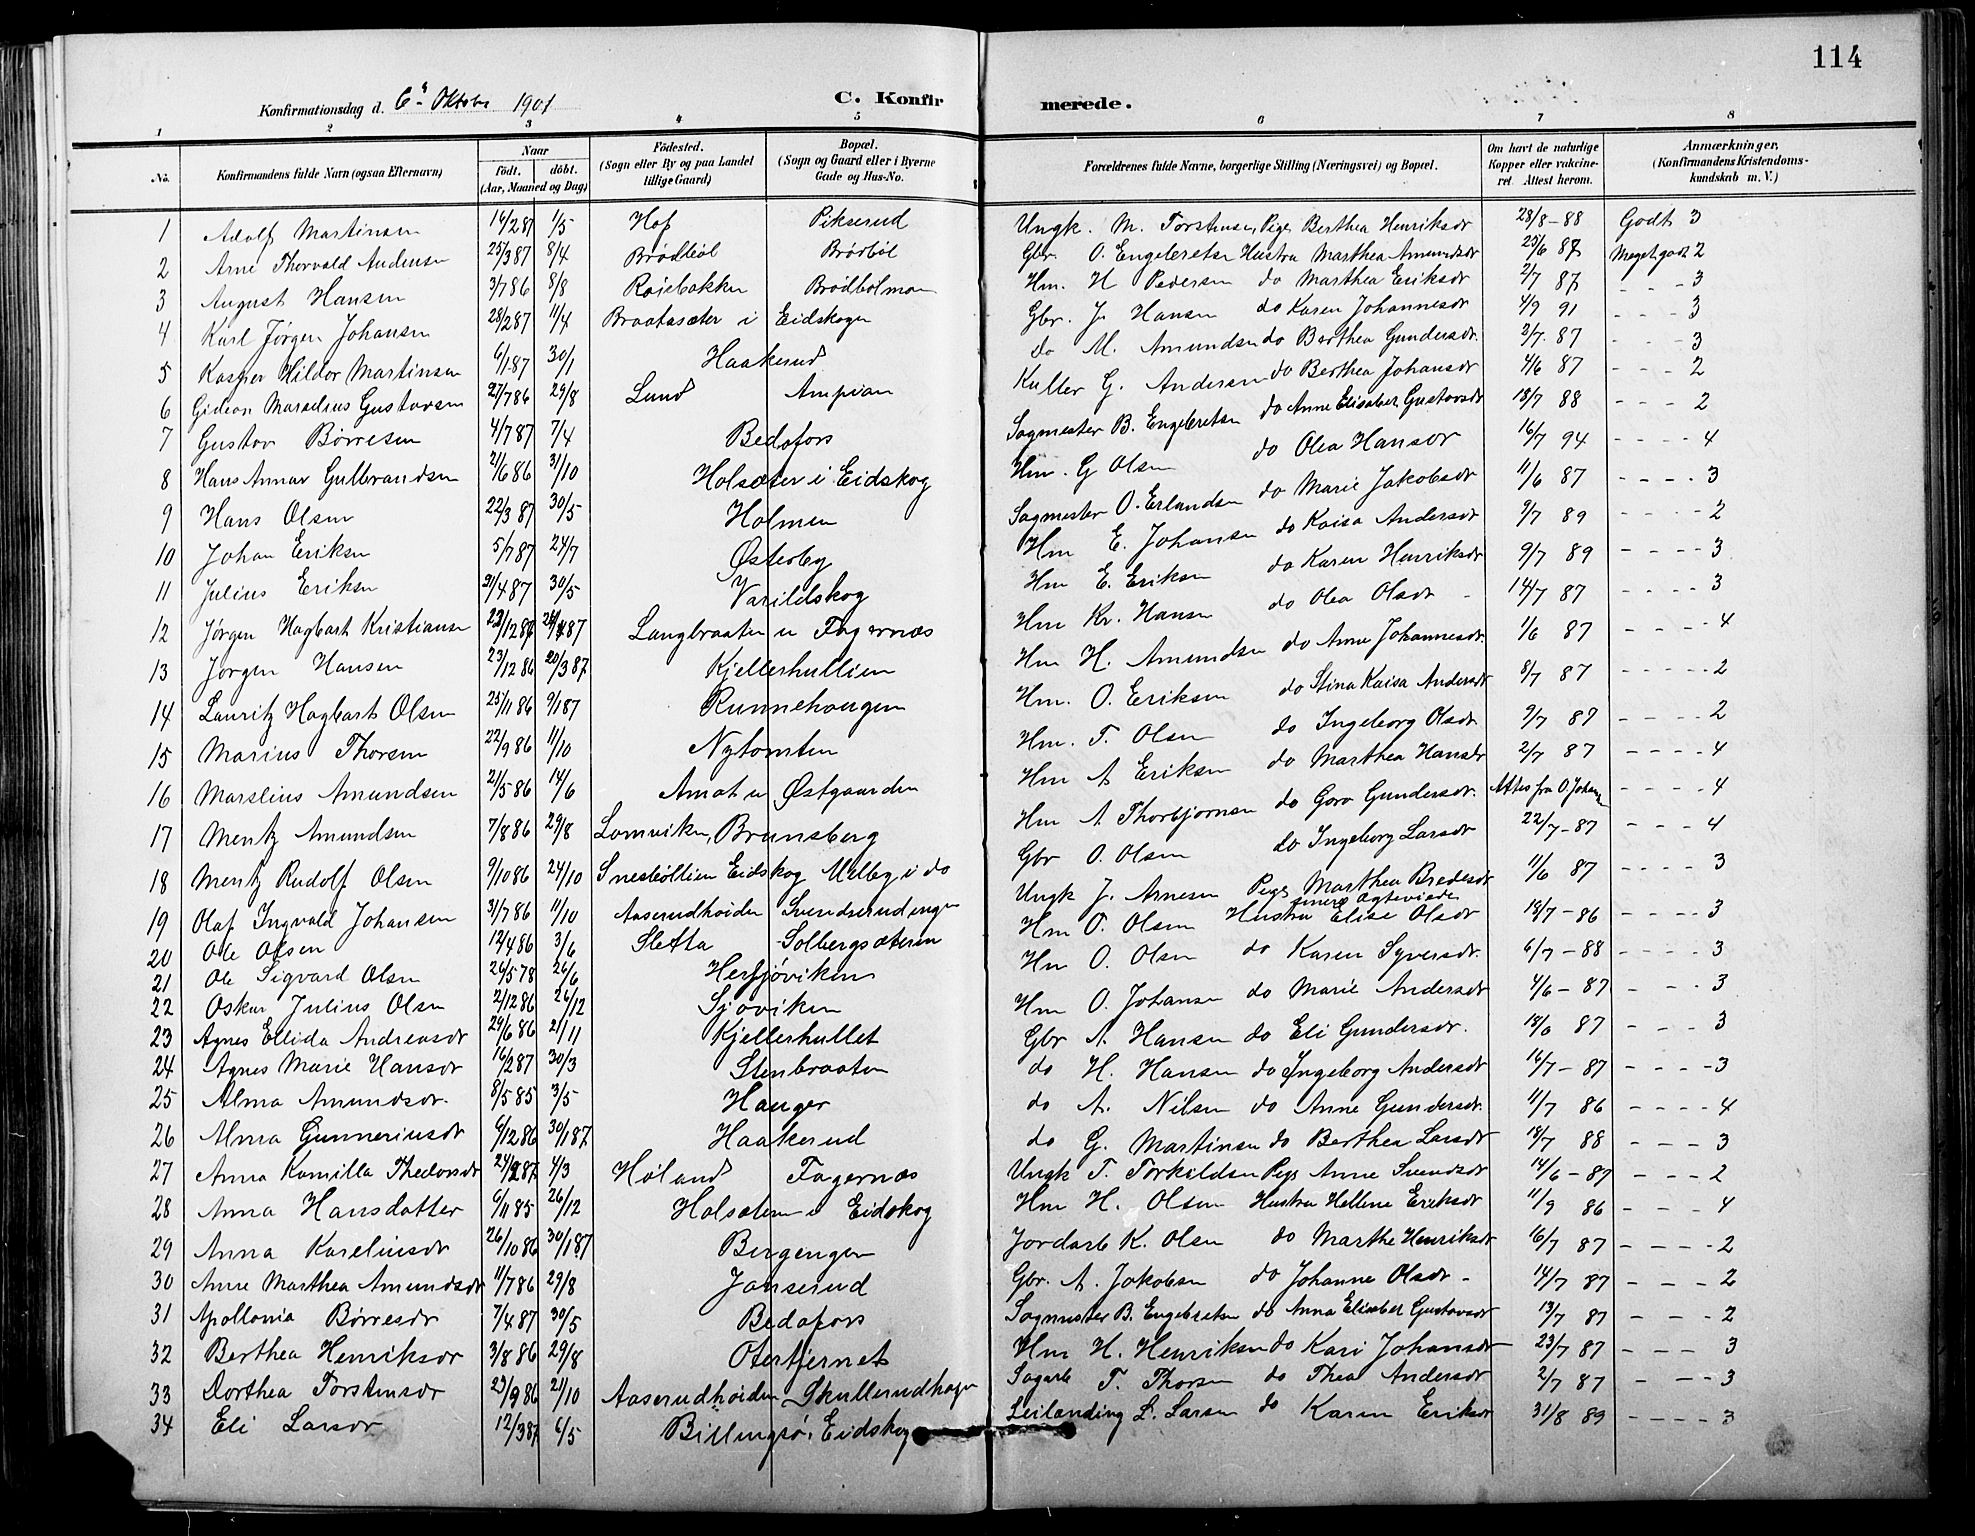 114
Konfirmationsdag d. 6te Oktober 1901
C. Konfirmerede.
1 2 3 4 5 6 7 8
No. Konfirmandens fulde Navn (ogsaa Efternavn) Naar födt. döbt. (Aar, Maaned og Dag) Födested. (Sogn eller By og paa Landet tillige Gaard) Bopæl. (Sogn og Gaard eller i Byerne Gade og Hus-No. Forældrenes fulde Navne, borgerlige Stilling (Næringsvei) og Bopæl. Om havt de naturlige Kopper eller vakcineret. Attest herom. Anmærkninger, (Konfirmandens Kristendomskundskab m. V.)
1 Adolf Martinsen 14/2 87 1/5 Hof Pikserud Ungk. M. Pige Berthea Henriksdr 28/8-88 Godt 3
2 Arne Thorvald Andersen 25/3 87 8/4 Brödböl Brödböl Gbr. O. Engebretsen Hustru Marthea Amundsdr 25/6 87 Meget godt 2
3 August Hansen 3/7 86 8/8 Röiebakken Brödbölmoen Hm. H Pedersen do Marthea Eriksdr 2/7 87 - - - 3
4 Karl Jørgen Johansen 28/2 87 11/4 Braatasæter i Eidskogen Gbr. J. Hansen do Karen Johannesdr 4/9 91 - - - 3
5 Kasper Hildor Martinsen 6/1 87 30/1 Haakerud do M. Amundsen do Berthea Gundersdr. 2/7. 87 - - - 3
6 Gideon Marselius Gustavsen 27/7 86 29/8 Lund Kuller G. Andersen do Berthea Johansdr 4/6 87 - - - 2
7 Gustav Børresen 4/7 87 7/4 Bedafors Sagmester B. Engebretsen do Anne Elisabet Gustavsdr 18/7 88 - - - 2
8 Hans Annar Gulbrandsen 21/6 86 31/10 Holsæter i Eidskog Hm. G Olsen do Olea Hansdr 16/7 94 - - - - 4
9 Hans Olsen 22/3 87 30/5 Holmen Sagmester O. Erlandsen do Marie Jakobsdr 11/6 87 - - - - 3
10 Johan Eriksen 5/7 87 24/7 Østerby Hm E. Johansen do Kaisa Andersdr 9/7 89 - - - - 2
11 Julius Eriksen 21/4 87 30/5 Varildskog Hm E. Eriksen do Karen Henriksdr 9/7 89 - - - - 3
12 Jørgen Hagbart Kristiansen 23/12 86 Langbraaten u Fagernæs Hm Kr. Hansen do Olea Olsdr - 14/7 87 - - - - 3
13 Jørgen Hansen 23/12 86 20/3 87 Kjellerhullien Hm H. Amundsen do Anne Johannesdr. 1/6 87 - - - - - 4
14 Lauritz Hagbart Olsen 25/11 86 9/1 87 Runnehaugen Hm. O. Eriksen do Stina Kaisa Andersdr 8/7 87 - - - - - 2
15 Marius Thorsen 22/9 86 11/10 Nytomten Hm. T. Olsen do Ingeborg Olsdr 9/7 87 - - - - 2
16 Marselius Amundsen 21/5 86 14/6 Amot u Østgaarden Hm A Eriksen do Marthea Hansdr 2/7 87 - - - - 4
17 Mentz Amundsen 7/8 86 29/8 Lomviken, Brunsberg Hm A Thorbjornsen do Goro Gundersdr. Attes fra O. Johan - - - - 4
18 Mentz Rudolf Olsen 9/10 86 24/10 Snesböllien Eidskog Melby i do Gbr O. Olsen do Ingeborg Larsdr 22/7-87 - - - - 4
19 Olaf Ingvald Johansen 31/7 86 11/10 Aaserudhöiden Svenserudengen Ungk J. Arnesen Pige Marthea Bredesdr senere Ægteviede 11/6 87 - - - - 3
20 Ole Olsen 12/4 86 3/6 Sletta Solbergsæteren Hm O. Olsen Hustru Elise Olsdr 19/7-86 - - - - 3
21 Ole Sigvard Olsen 26/5 78 26/6 Hersjöviken Hm O. Olsen do Karen Syversdr. 6/7-88 - - - - 3
22 Oskar Julius Olsen 2/12 86 26/12 Sjöviken Hm O. Johansen do Marie Andersdr 4/6-87 - - - 3
23 Agnes Ellida Andreasdr 29/6 86 21/11 Kjellerhullet Gbr A. Hansen do Eli Gundersdr. 18/6 87 - - - 3
24 Agnes Marie Hansdr 16/2 87 30/3 Stenbraaten do H. Hansen do Ingeborg Andersdr 16/7-87 - - - - 3
25 Alma Amundsdr. 8/5 85 3/5 Hauger do A. Nilsen do Anne Gundersdr. 11/7 86 - - - - 4
26 Alma Gunneriusdr 6/12 86 30/1 87 Haakerud do G. Martinsen do Berthea Larsdr 18/7 88 - - - 3
27 Anna Kamilla Thedorsdr 24/2 87 4/3 Höland Fagernæs Ungk T. Torkildsen Pige Anne Svendsdr 14/6-87 - - - 2
28 Anna Hansdatter 6/11 85 26/12 Holsæteren i Eidskog Hm H. Olsen Hustru Hellene Eriksdr 11/9 86 - - - 4
29 Anna Karelinsdr 26/10 86 30/1 87 Bergengen Jordarb K. Olsen do Marthe Henriksdr 16/7 87 - - - - 2
30 Anne Marthea Amundsdr 11/7 86 29/8 Janserud Gbr. A. Jakobsen do Johanne Olsdr - 14/7 87 - - - - 2
31 Apollonia Børresdr 7/4 87 30/5 Bedafors Sagmester B. Engebretsen do Anna Elisabet Gustavsdr 13/7 87 - - - 2
32 Berthea Henriksdr 3/8 86 29/8 Oterfjernet Hm H. Henriksen do Kari Johansdr 23/7 87 - - - 3
33 Dorthea Torstensdr 23/9 86 21/10 Aaserudhöiden Skullerudhagen Sagarb T. Thorsen do Thea Andersdr 2/7 87 - - - 3
34 Eli Larsdr 12/3 87 6/5 Billingsö, Eidskog Leilending L. Larsen do Karen Eriksdr 31/8 89 - - - - 3